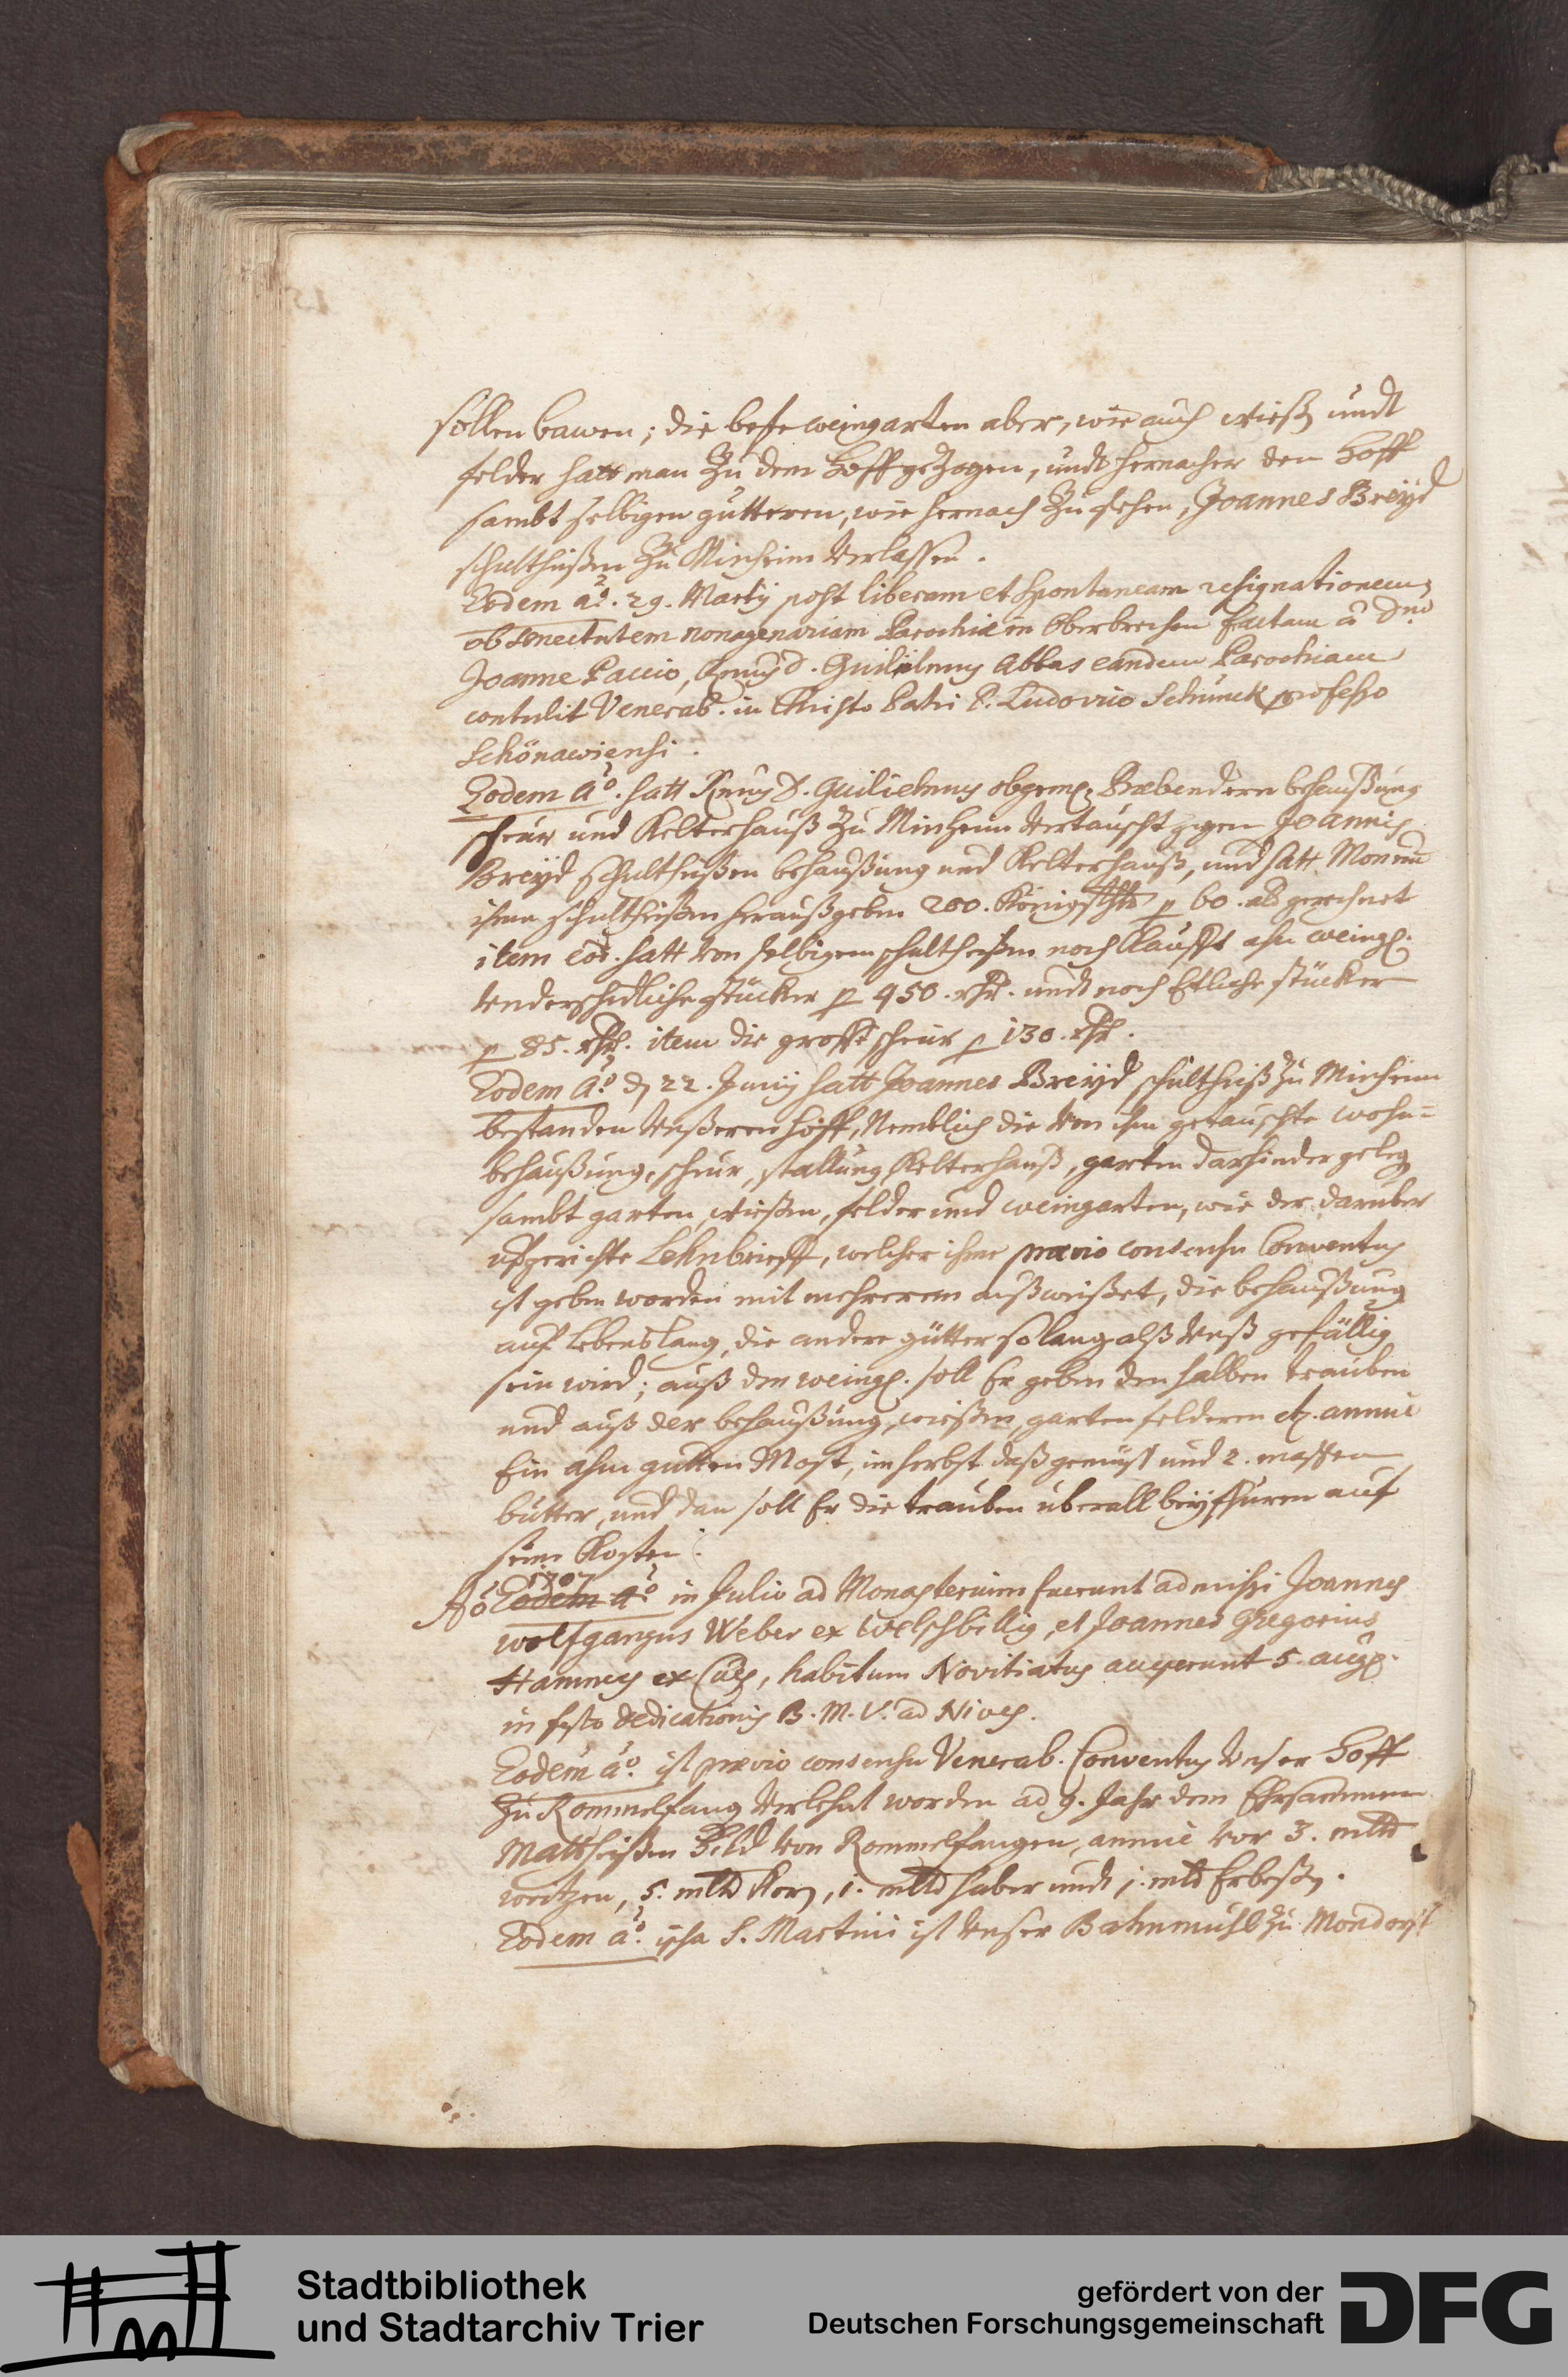 sollen bawen; die beste weingarten aber, wie auch wieß undt
felder hatt man zu dem Hoff gezogen, undt hernacher den Hoff
sambt selbigen gütteren, wie hernach zu sehen, Joannes Breÿd
schultheißen zu Minheim verlassen.
Eodem aō. 29. Martÿ post liberam et spontaneam resignationem
ob senectutem nonagenariam Parochiæ in Oberbrechen factam â Dnō
Joanne Paccio, Rmus D. Guilielmus Abbas eandem Parochiam
contulit Venerab. in Christo Patri P. Ludovico Schunck professo
Schönawiensi.
Eodem Aō. hatt Rmus D. Guilielmus obgem. Præbenderen behaußung
scheur und Kelterhauß zu Minheim vertauscht gegen Joannis
Breÿd schultheißen behaußung und Kelterhauß, und hatt Monrium
ihme schultheißen heraußgeben 200. Königsthlr p 60. alb gerechnet
item eod. hatt von selbigem schultheißen noch kaufft ahn weing.
underschidliche stücker p 450. rthr. undt noch Etliche stücker
p 85. rthr. item die grosse scheur p 130. rthr.
Eodem Aō. d 22. Junÿ hatt Joannes Breÿd schultheiß zu Minheim
bestanden unßeren Hoff, Nemblich die von ihm getauschte wohn=
behaußung, scheur, stallung, Kelterhauß, garten darhinder geleg
sambt garten, wießen, felder und weingarten, wie der daruber
ufgerichte Lehnbrieff, welcher ihme prævio consensu Conventus
ist geben worden mit mehrerem außweißet, die behaußung
auf lebenslang, die andere gütter solang alß unß gefällig
sein wird; auß den weing. soll Er geben den halben trauben
und auß der behaußung, wießen, garten felderen etc. annuè
Ein ahm gutten Most, im herbst daß gemüß und 2. massen
butter, und dan soll Er die trauben uberall beÿfhuren auf
seine Kosten.
Aō 1707 Eodem Aō in Julio ad Monasterium fuerunt admissi Joannes
Wolfgangus Weber ex Welschbillig, et Joannes Gregorius
Hammes ex Cues, habitum Novitiatus acceperunt 5. aug.
in festo dedicationis B. M. V. ad Nives.
Eodem aō. ist prævio consensu Venerab. Conventus unser Hoff
zu Rommelfang verlehnt worden ad 9. Jahr dem Ehrsammen
Mattheißen Hild von Rommelfangen, annuè vor 3. mltd
weitzen, 5. mltd Korn, 1. mltd haber undt j. mltd Erbeßen.
Eodem aō. ipsa S. Martini ist unser Bahnmühl zu Mondorf
Stadtbibliothek
und Stadtarchiv Trier
gefördert von der
Deutschen Forschungsgemeinschaft
DFG